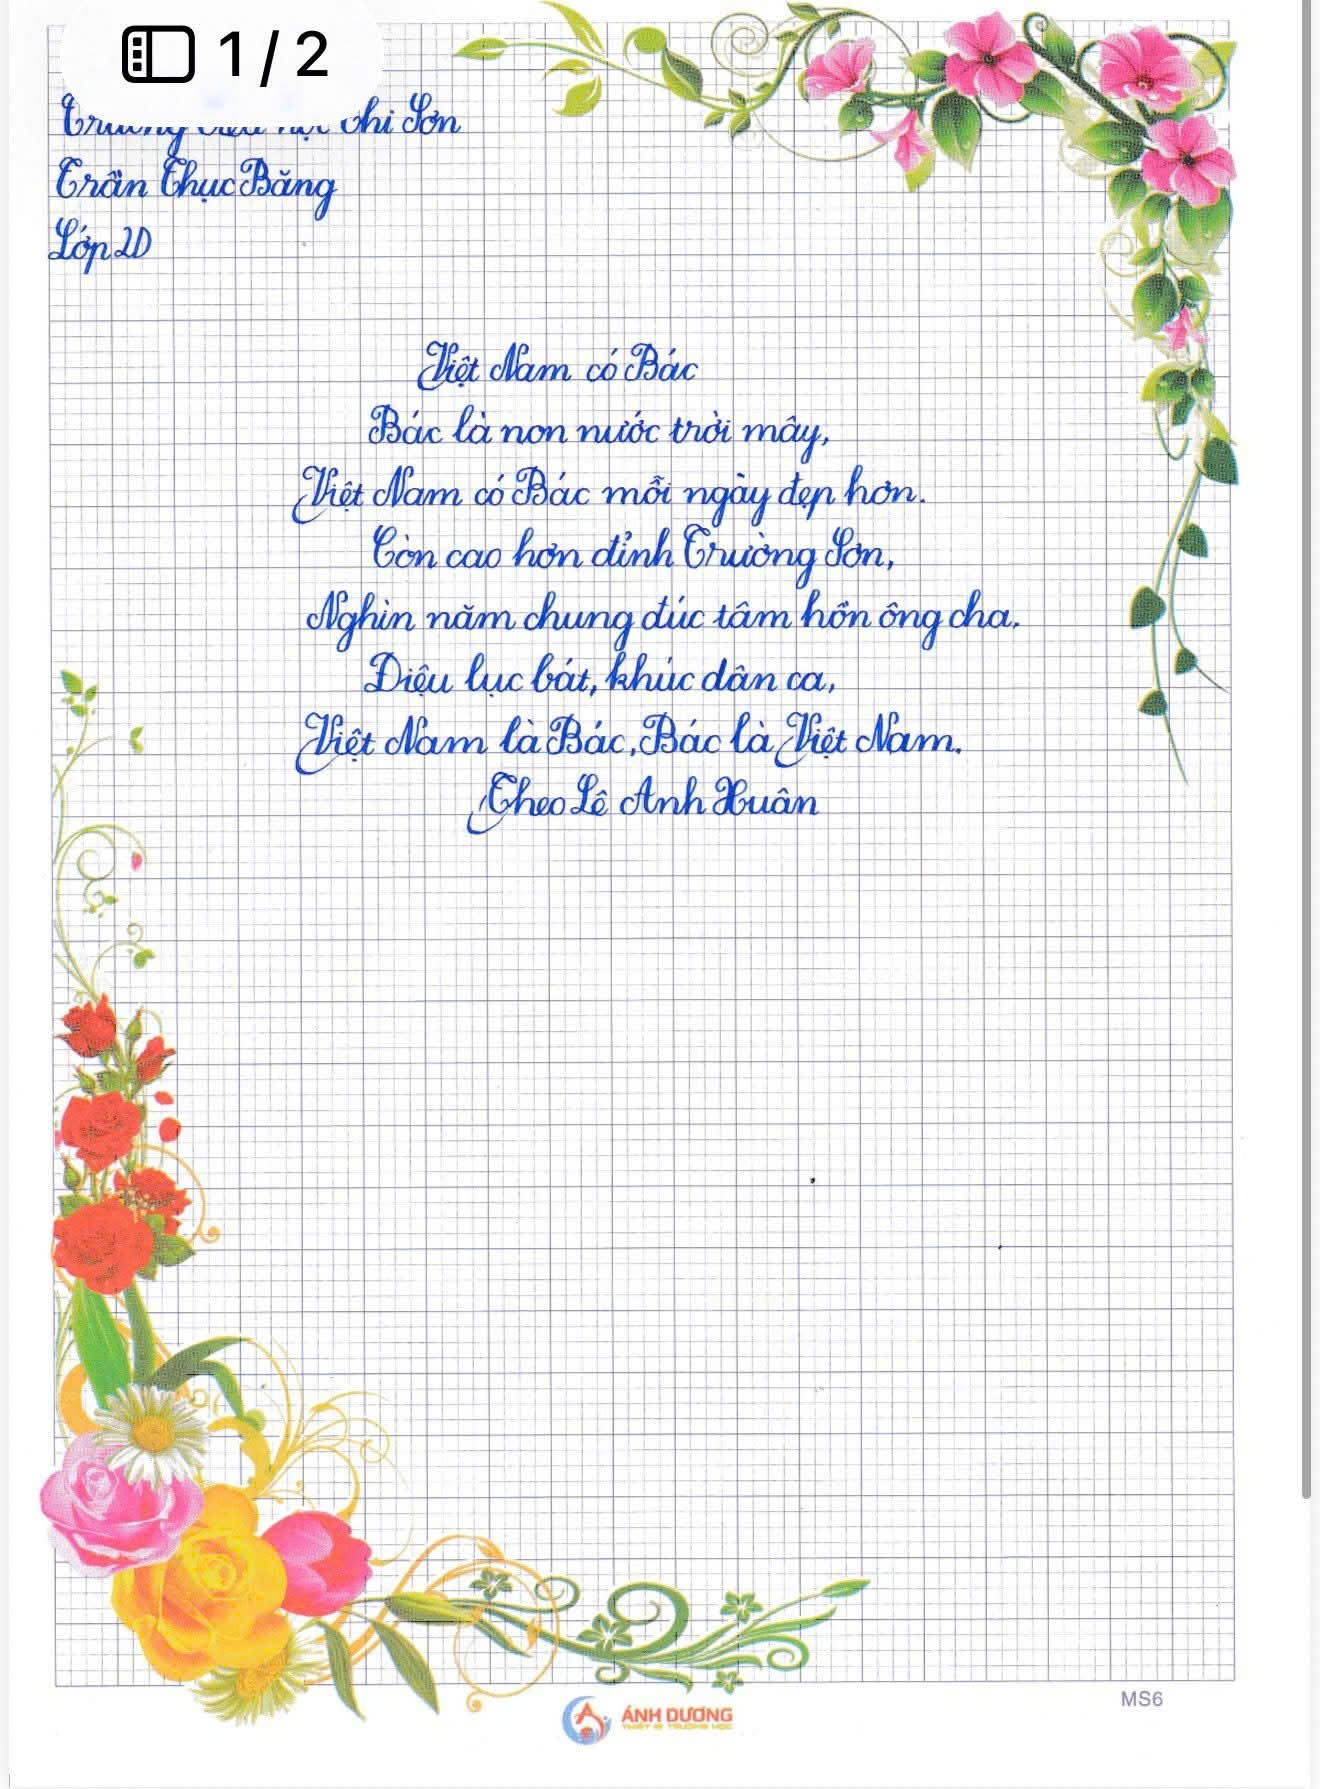 1/2
Trường Tiểu học Chi Sơn
Trần Thục Băng
Lớp 2D
Việt Nam có Bác
Bác là non nước trời mây,
Việt Nam có Bác mỗi ngày đẹp hơn.
Còn cao hơn đỉnh Trường Sơn,
Nghìn năm chung đúc tâm hồn ông cha.
Điệu lục bát, khúc dân ca,
Việt Nam là Bác, Bác là Việt Nam.
Theo Lê Anh Xuân
ÁNH DƯƠNG
THIẾT BỊ TRƯỜNG HỌC
MS6